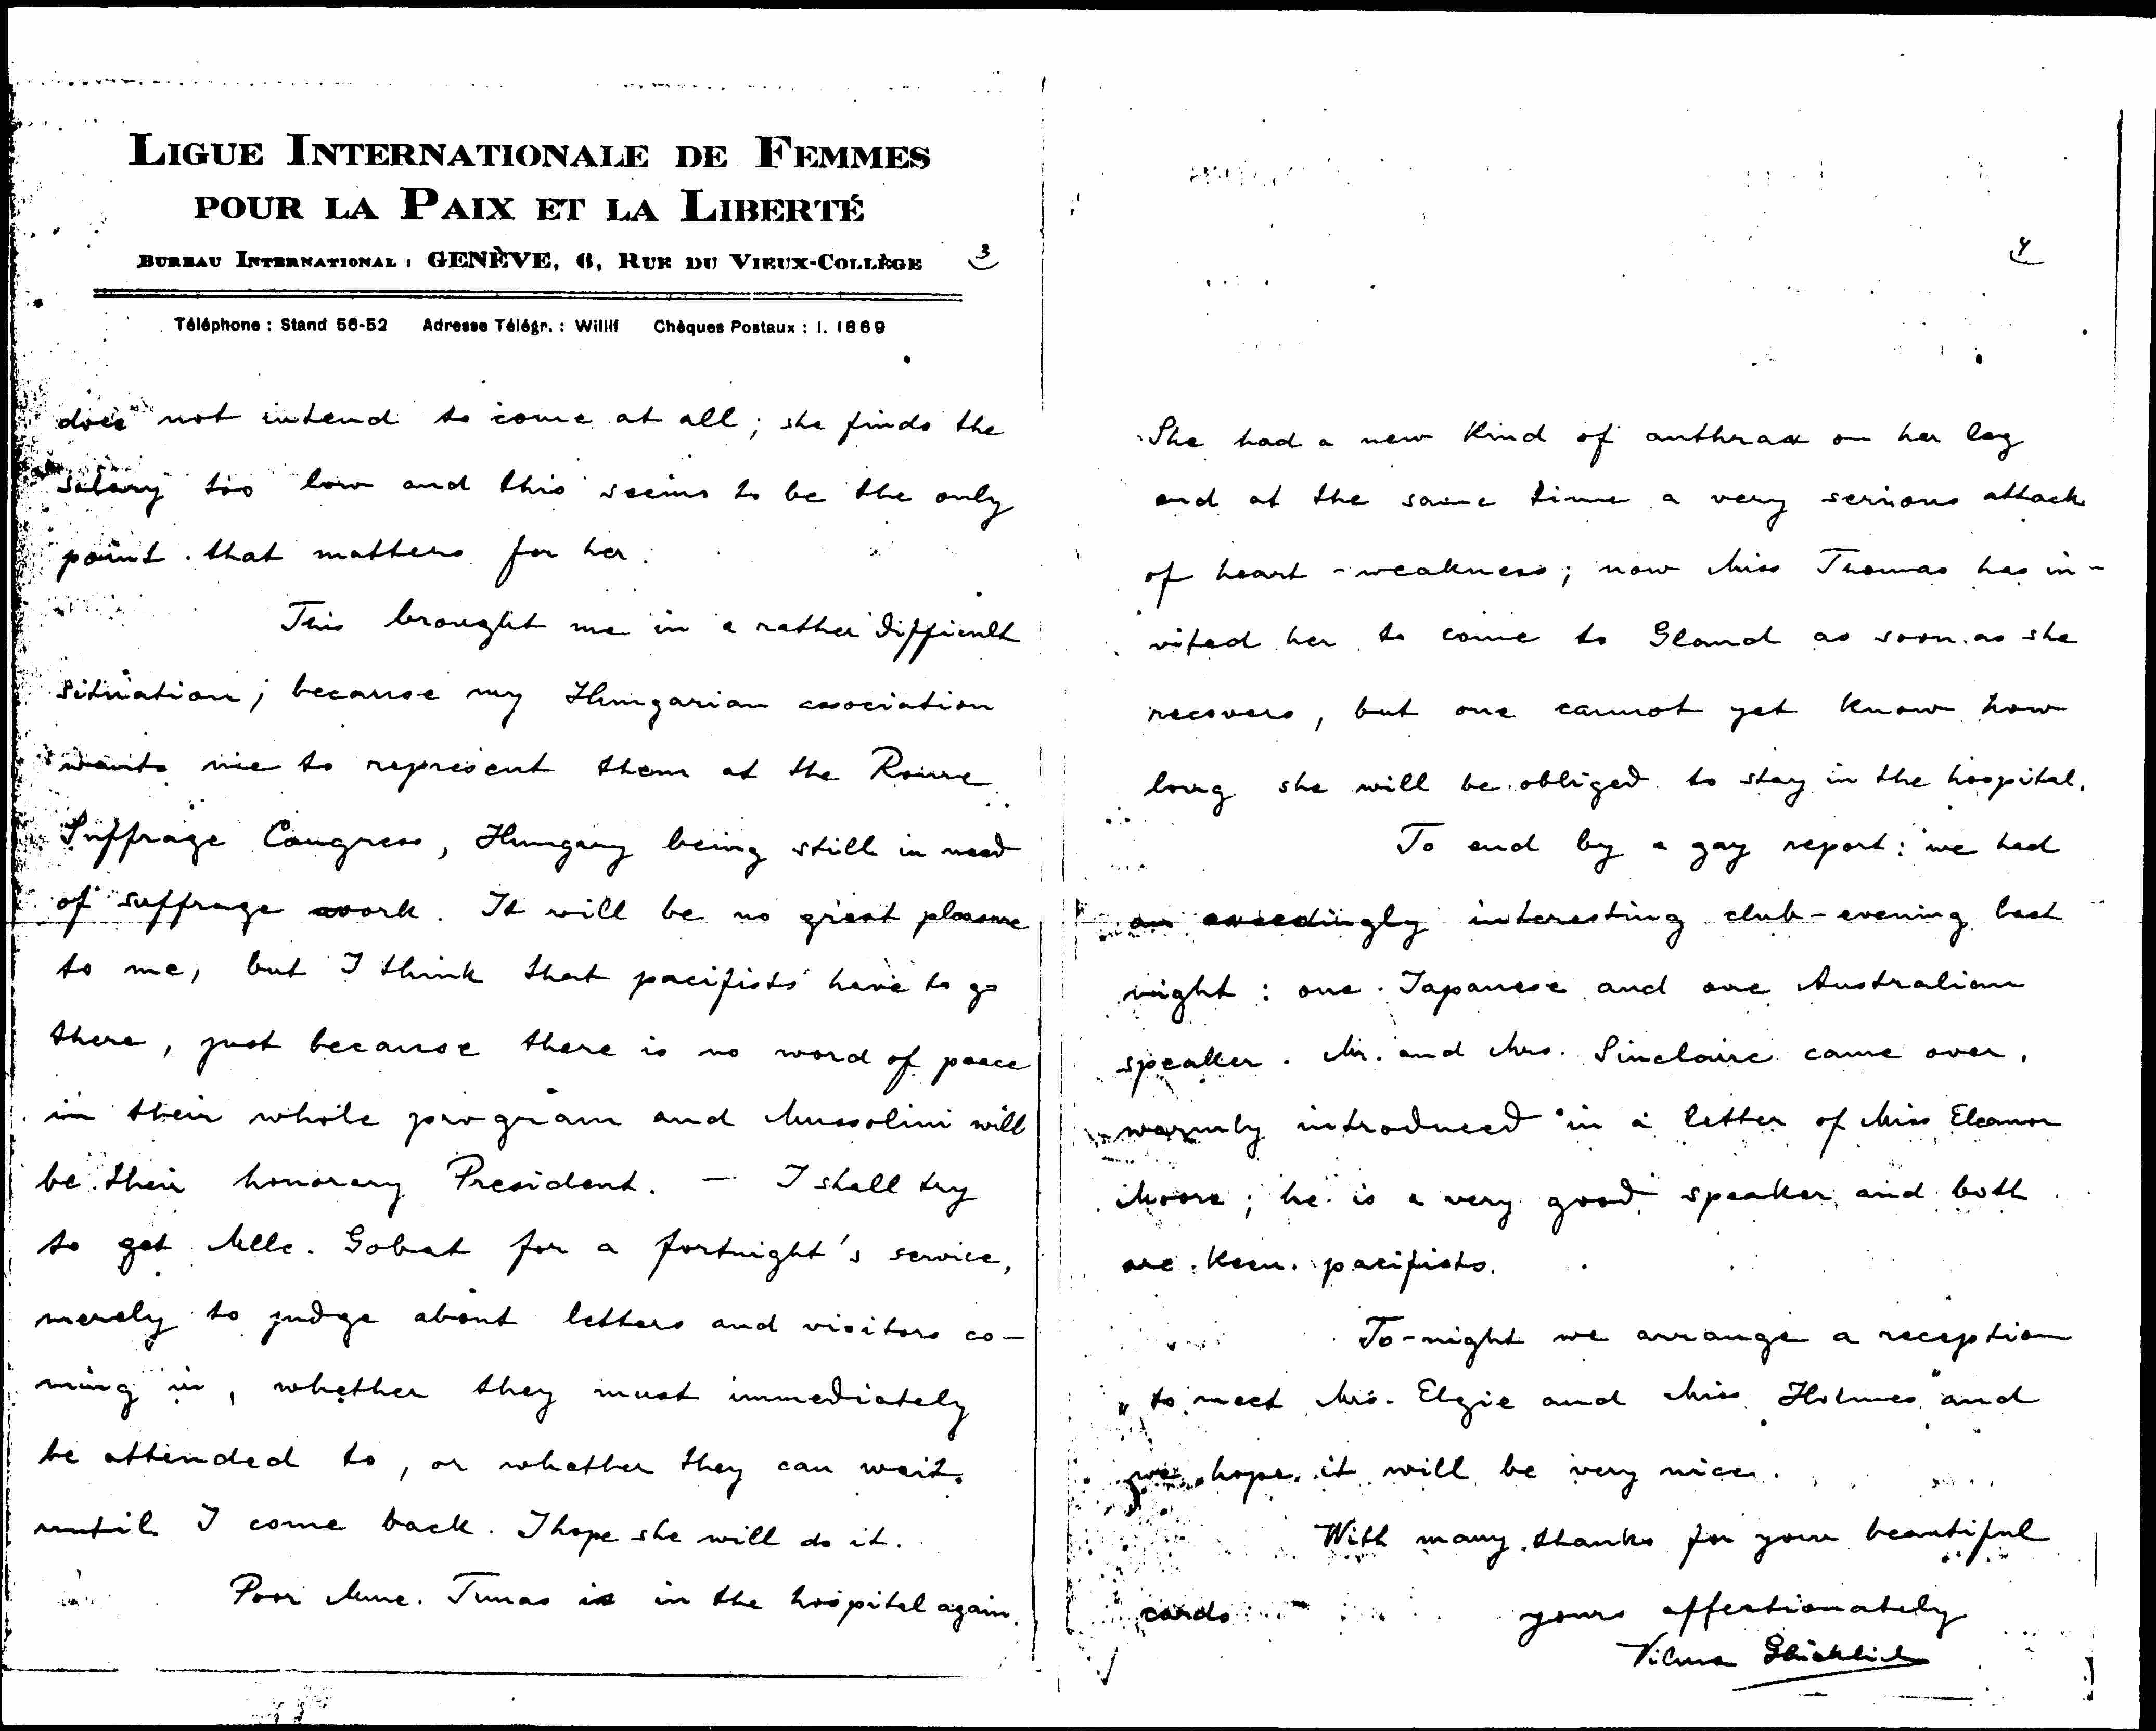 LIGUE INTERNATIONALE DE FEMMES
POUR LA PAIX ET LA LIBERTÉ
BUREAU INTERNATIONAL : GENÈVE, 6, RUE DU VIEUX-COLLÈGE
3
Téléphone : Stand 56-52 Adresse Télégr. : Willif Chèques Postaux : I. 1869
does not intend to come at all; she finds the
salary too low and this seems to be the only
point that matters for her.
This brought me in a rather difficult
situation; because my Hungarian association
wants me to represent them at the Rome
Suffrage Congress, Hungary being still in need
of suffrage work. It will be no great pleasure
to me, but I think that pacifists have to go
there, just because there is no word of peace
in their whole program and Mussolini will
be their honorary President. — I shall try
to get Mlle. Gobat for a fortnight's service,
merely to judge about letters and visitors co-
ming in, whether they must immediately
be attended to, or whether they can wait
until I come back. I hope she will do it.
Poor Mme. Tunas is in the hospital again.
4
She had a new kind of anthrax on her leg
and at the same time a very serious attack
of heart-weakness; now Miss Thomas has in-
vited her to come to Gland as soon as she
recovers, but one cannot yet know how
long she will be obliged to stay in the hospital.
To end by a gay report: we had
an exceedingly interesting club-evening last
night: one Japanese and one Australian
speaker. Mr. and Mrs. Sinclaire came over,
warmly introduced in a letter of Miss Eleanor
Moore; he is a very good speaker and both
are keen pacifists.
To-night we arrange a reception
"to meet Mrs. Elgie and Miss Holmes" and
we hope it will be very nice.
With many thanks for your beautiful
cards yours affectionately
Vilma Glücklich